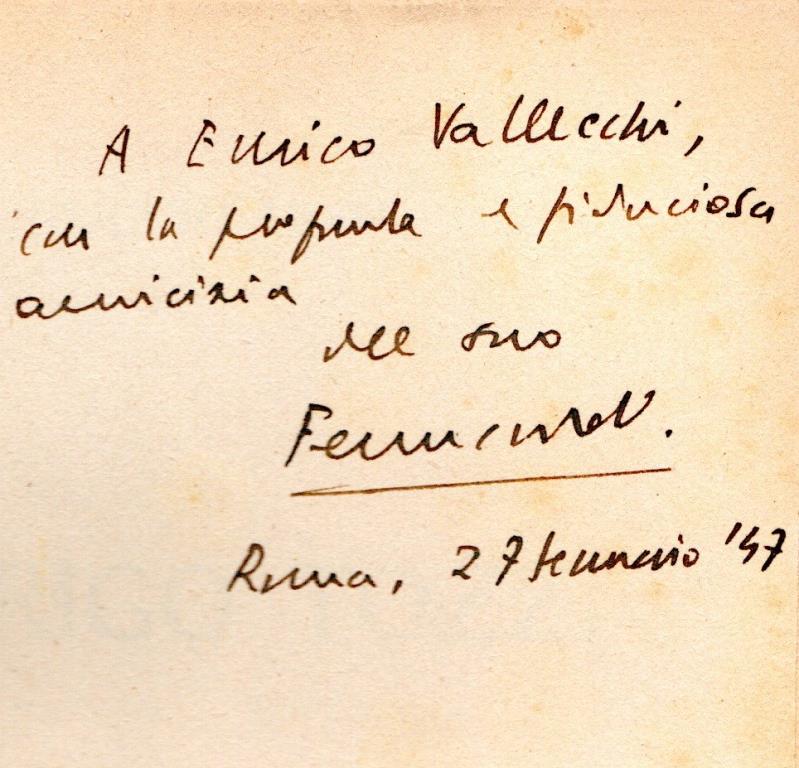 A Enrico Vallecchi,
con la profonda e fiduciosa
amicizia
del suo
Roma, 27 gennaio '47